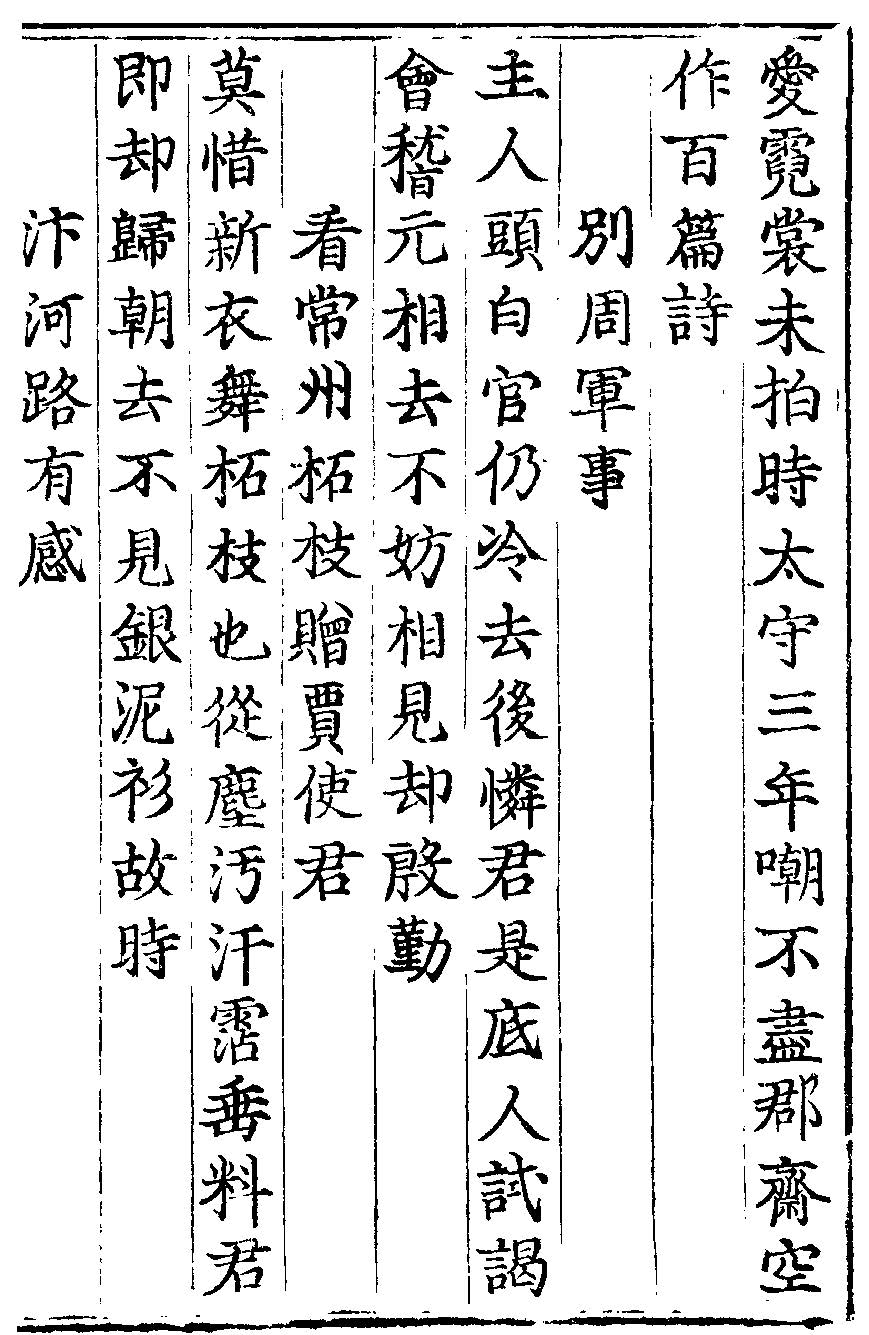 愛霓裳未拍時太守三年嘲不盡郡齋空
作百篇詩
別周軍事
主人頭白官仍冷去後憐君是底人試謁
會稽元相去不妨相見却殷勤
看常州柘枝贈賈使君
莫惜新衣舞柘枝也從塵汚汗霑垂料君
即却歸朝去不見銀泥衫故時
汴河路有感